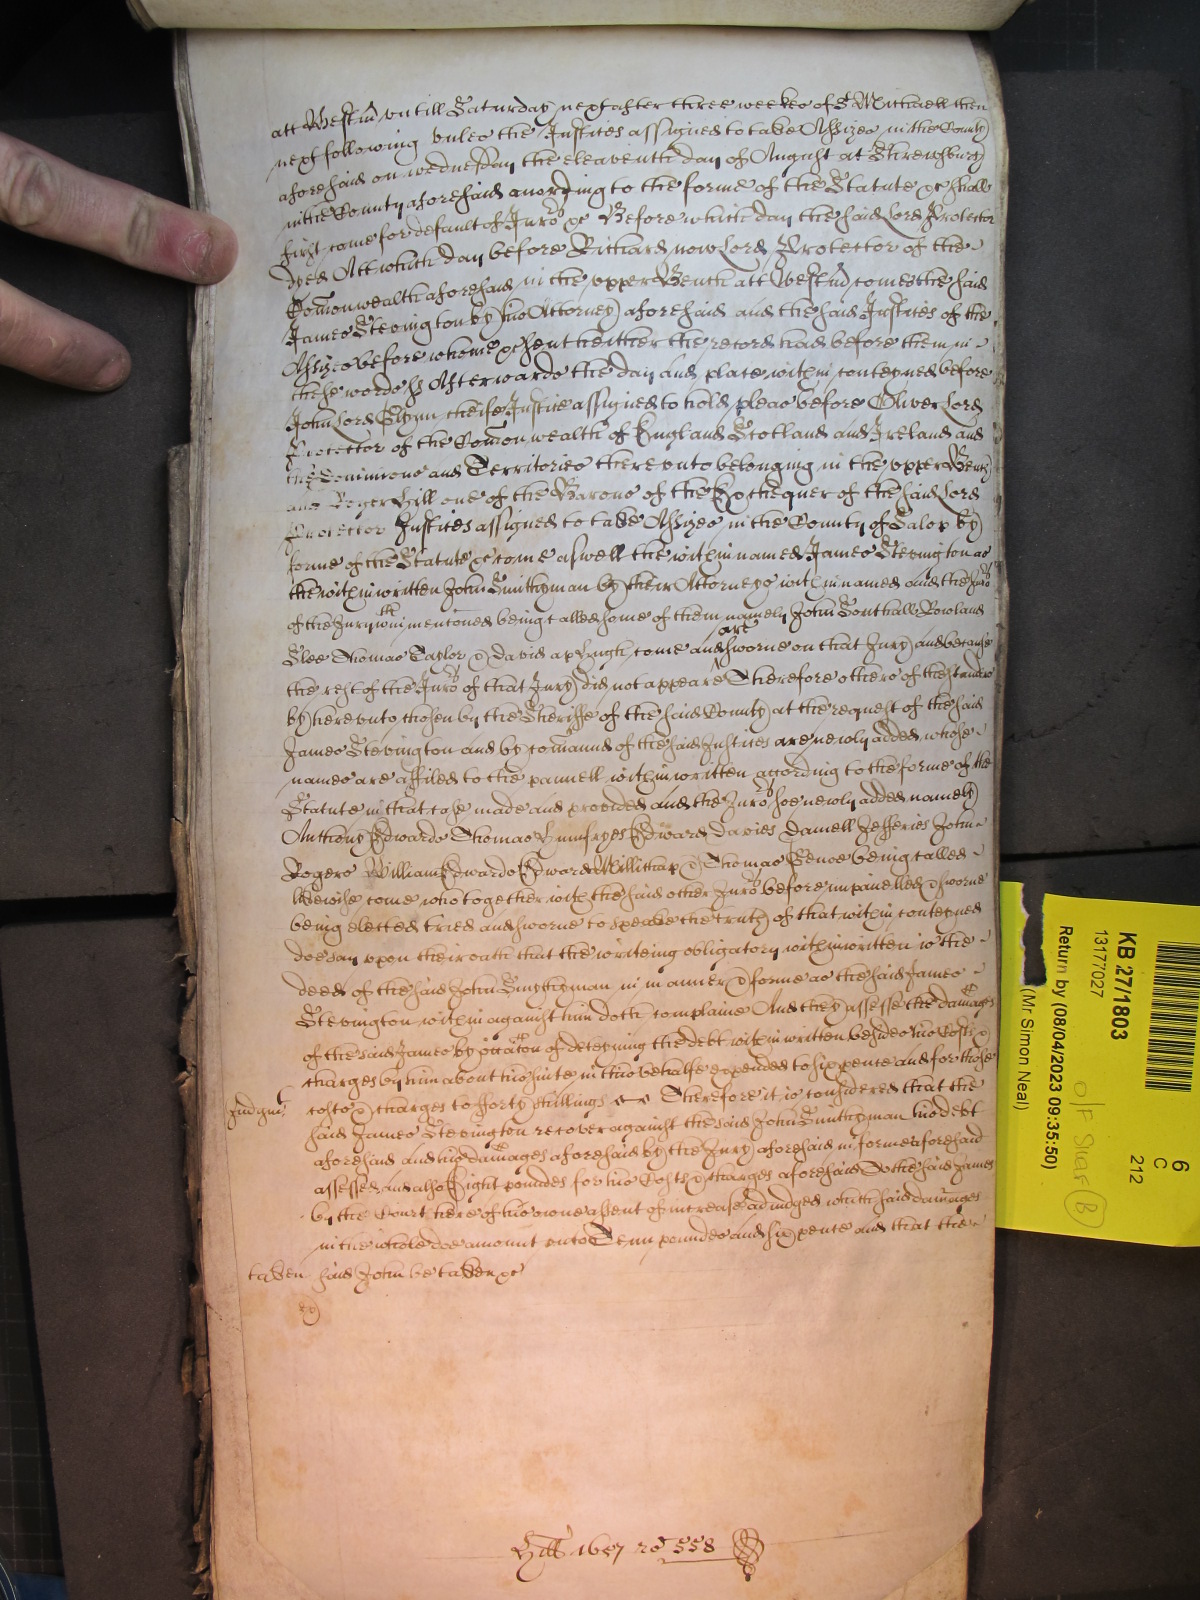 att Westm̃ untill Saturday next after three weekes of St Michaell then
next following unles the Justices assigned to take Assizes in the County
aforesaid on wednesday the eleaventh day of August at Shrewsbury
in the County aforesaid according to the forme of the Statute &c shall
first come for default of Juro:rs &c Before which day the said Lord Protector
dyed Att which day before Richard now Lord Protector of the
Com̃onwealth aforesaid in the upper Bench att Westm̃ comes the said
James Stevington by his Attorney aforesaid and the said Justices of the
Assizes before whome &c sent hether the record had before them in
these words ss Afterwards the day and place within conteyned before
John Lord Glynn cheife Justice assigned to hold pleas before Oliver Lord
Protector of the Com̃onwealth of England Scotland and Ireland and
the Dominions and Territories thereunto belonging in the upper Bench
and Roger Hill one of the Barons of the Exchequer of the said Lord
Protector Justices assigned to take Assizes in the County of Salop by
forme of the Statute &c come aswell the within named James Stevington as
the within written John Smithyman by their Attorneys within named and the Juro:rs
of the Jury w:thin mentoned being called some of them namely John Southall Rowland
Slee Thomas Taylor & David ap Hugh come and are sworne on that Jury and because
the rest of the Juro:rs of that Jury did not appeare Therefore others of the standers
by hereunto chosen by the Sheriffe of the said County at the request of the said
James Stevington and by com̃aund of the said Justices are newly added whose
names are affiled to the pannell within written according to the forme of the
Statute in that case made and provided and the Juro:rs soe newly added namely
Anthony Edwards Thomas Humfryes Edward Davies Daniell Jefferies John
Rogers William Edwards Edward Millichap & Thomas Bence being called
likewise come who together with the said other Juro:rs before impanelled & sworne
being elected tried and sworne to speake the truth of that within conteyned
doe say upon their oath that the writeing obligatory within written is the
deed of the said John Smithyman in manner & forme as the said James
Stevington within against him doth complaine And they assesse the damages
of the said James by occac̃on of deteyning the debt within written besides his Costs &
charges by him about his suite in this behalfe expended to six pence and for those
Judgm:t costs & charges to forty shillings Therefore it is considered that the
said James Stevington recover against the said John Smithyman his debt
aforesaid and his damages aforesaid by the Jury aforesaid in forme aforesaid
assessed and also Eight poundes for his Costs & charges aforesaid to the said James
by the Court here of his owne assent of increase adiudged which said damages
in the whole doe amount unto Tenn poundes and six pence and that the
taken said John be taken &c
Hill 1657 ro 558
KB 27/1803
13177027
Return by (08/04/2023 09:35:50)
(Mr Simon Neal)
6
C
212
O/F Staf B